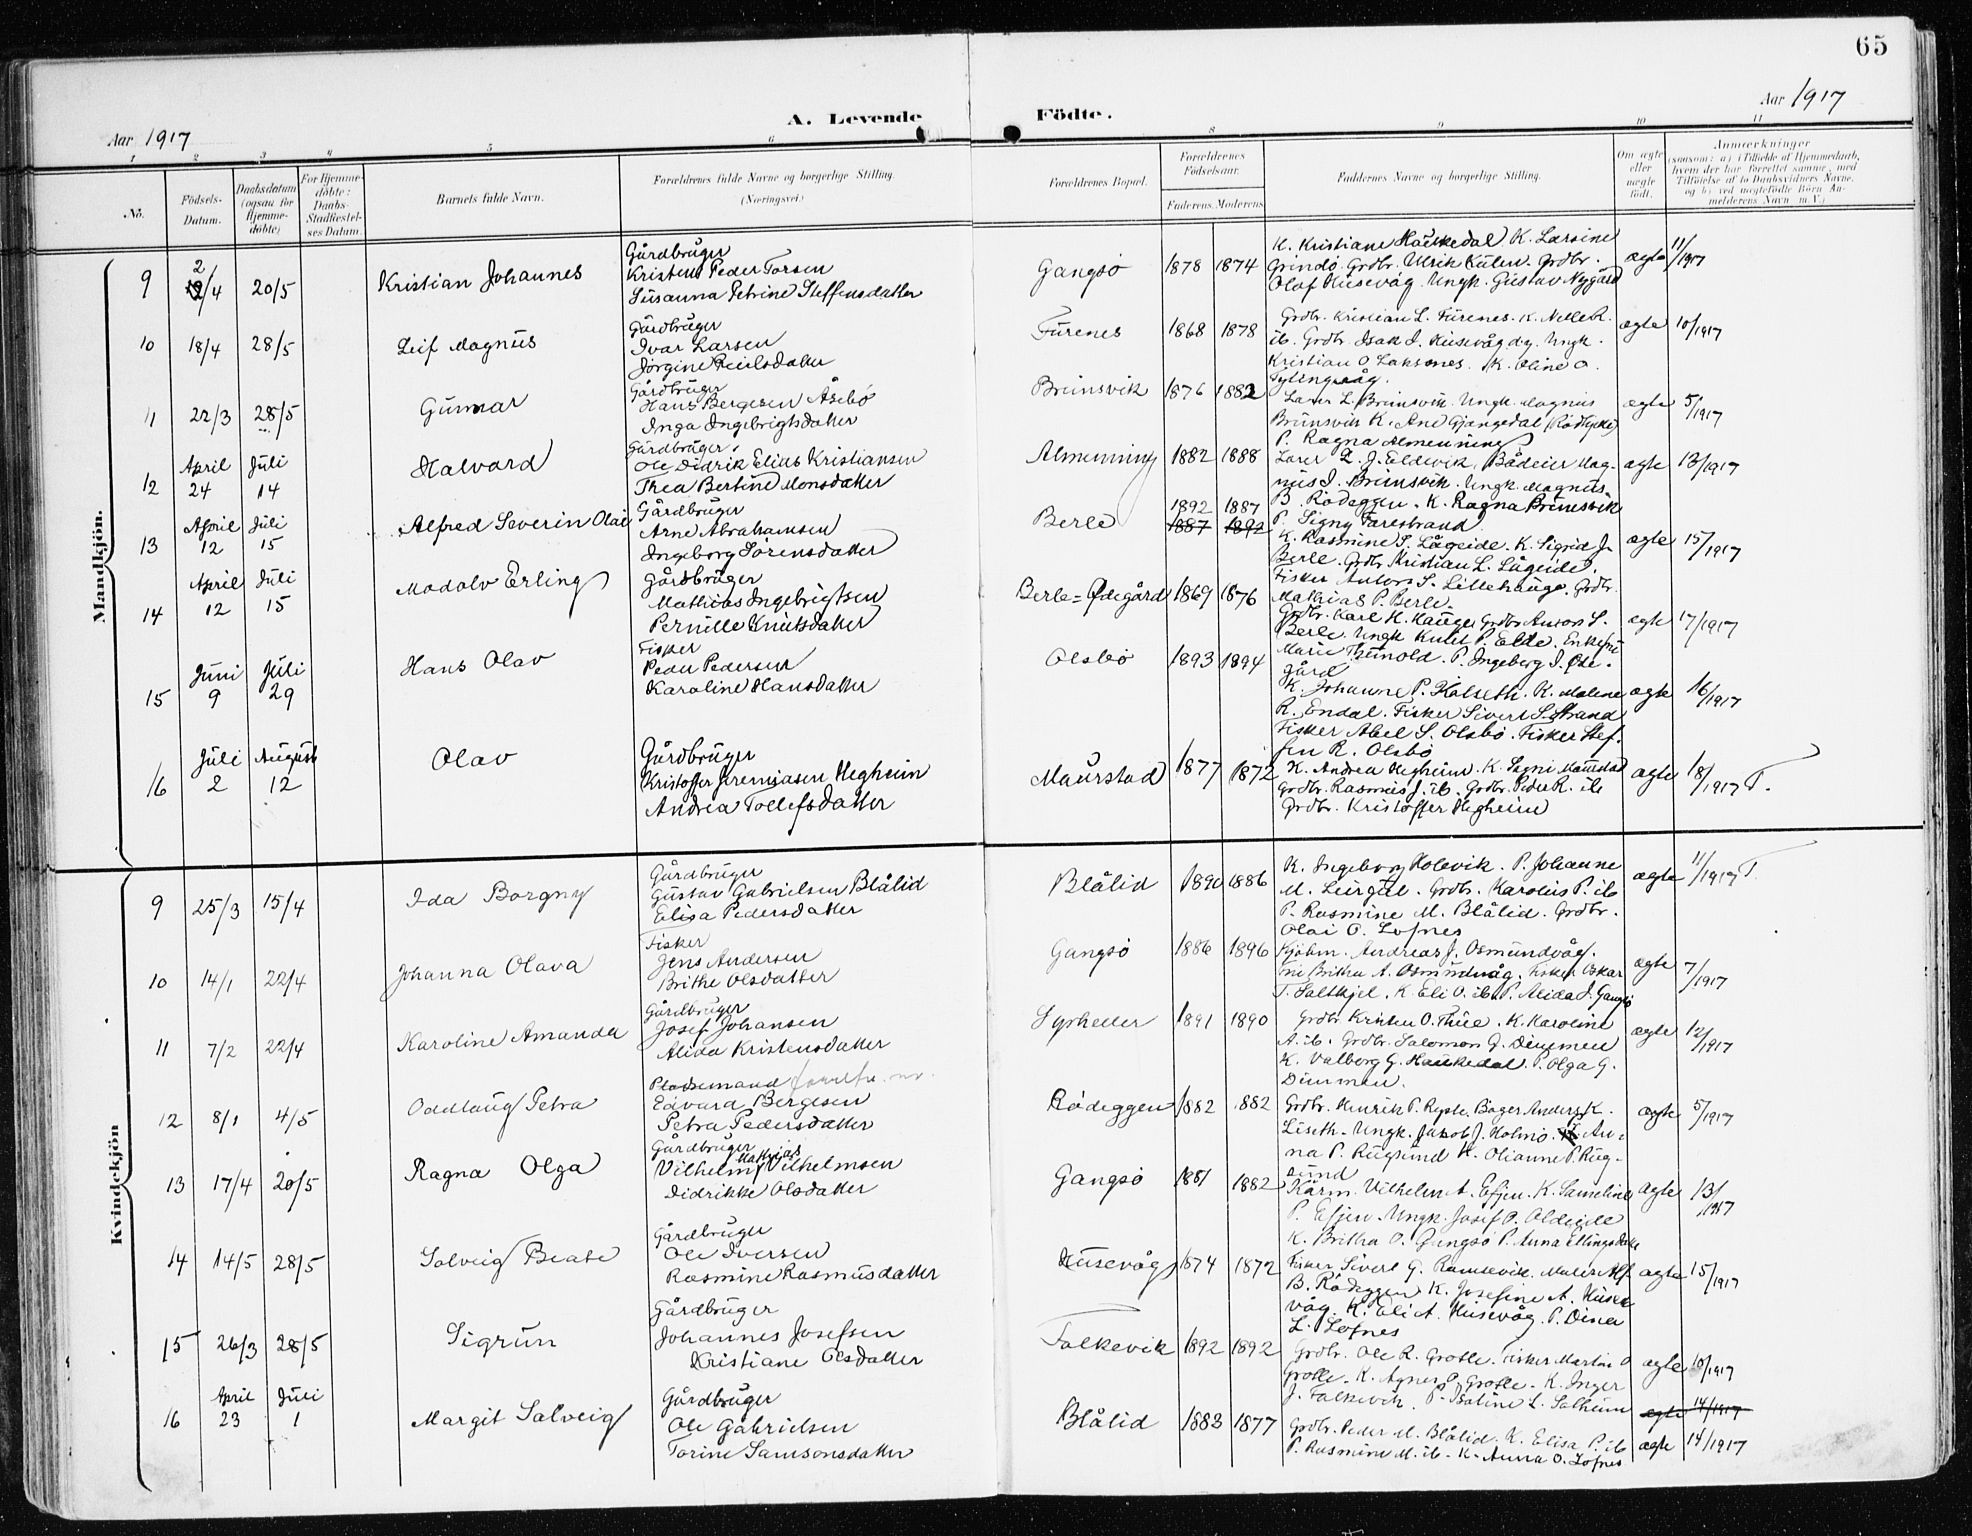 65
Aar 1917
A. Levende Födte.
Aar 1917
1 2 3 4 5 6 8 9 10 11
No.
Födsels-Datum.
Daabsdatum (ogsaa for Hjemme-döbte)
For Hjemme-döbte: Daabs-Stadfæstel-ses Datum.
Barnets fulde Navn.
Forældrenes fulde Navne og borgerlige Stilling. (Næringsvei.)
Forældrenes Bopæl.
Forældrenes Födselsaar.
Faderens. Moderens
Faddernes Navne og borgerlige Stilling.
Om ægte eller uægte födt.
Anmærkninger
(saasom: a) i Tilfælde af Hjemmedaab, hvem der har forrettet samme, med Tilföielse af to Daabsvidners Navne. og b) ved uægtefödte Börn Anmelderens Navn m. V.)
Mandkjön.
9 2/4 20/5 Kristian Johannes
Gårdbruger
Kristen Peder Torsen
Susanna Petrine Steffensdatter
Gangsö 1878 1874
K. Kristiane Haukedal K. Larsine
Grindö. Grdbr. Ulrik Kulen. Grdbr.
Olaf Husevåg. Ungk. Gustav Nygård
ægte 11/1917
10 18/4 28/5 Leif Magnus
Gårdbruger
Ivar Larsen
Jörgine
Furenes 1868 1878
Grdbr. Kristian L. Furenes. K. Nelle R.
ib. Grdbr. Isak I. Husevåg Ungk.
Kristian O. K. Oline O.
ægte 10/1917
11 22/3 28/5 Gunnar
Gårdbruger
Hans Bergesen Åsebö
Inga Ingebrigtsdatter
Brunsvik 1876 1882
Lærer L. Brunsvik. Ungk. Magnus
Brunsvik K. Ane Gjengedal
P. Ragna Almenning
ægte 5/1917
12 April 24 Juli 14 Halvard
Gårdbruger.
Ole Didrik Elias Kristiansen
Thea Bertine Monsdatter
Almenning 1882 1888
Lærer L. J. Eldevik. Bådeier Mag-
nus J. Brunsvik. Ungk. Magnus
B. Rödeggen. K. Ragna Brunsvik
P. Signy Farestrand
ægte 13/1917
13 April 12 Juli 15 Alfred Severin Olai
Gårdbruger
Arne Abrahamsen
Ingeborg Sörensdatter
Berle 1892 1887
1887 1892
K. Rasmine S. Lågeide. K. Sigrid J.
Berle. Grdbr. Kristian L. Lågeide.
Fisker Antors S. Lillehauge. Grdbr.
Mathias P. Berle.
ægte 15/1917
14 April 12 Juli 15 Modolv Erling
Gårdbruger
Mathias Ingebrigtsen
Pernille Knutsdatter
Berle=Ødegård 1869 1876
Grdbr. Karl H. Hauge Grdbr. Antors S.
Berle. Ungk Knut P. Elde. Enkepi
Marie P. Ingeborg I. Øde.
gård
ægte 17/1917
15 Juni 9 Juli 29 Hans Olav
Fisker
Peder Pedersen
Karoline Hansdatter
Olsbö 1893 1894
K. Johanne P. Kolseth. K. Malene
R. Endal. Fisker Sivert S. Strand
Fisker Abel S. Olsbö. Fisker Stef.
fen R. Olsbö
ægte 16/1917
16 Juli 2 August 12 Olav
Gårdbruger
Kristoffer Jeremiasen Hegheim
Andrea Tollefsdatter
Maurstad 1877 1872
K. Andrea Hegheim. K. Maurstad
Grdbr. Rasmus J. ib. Grdbr. Peder R. ib
Grdbr. Kristoffer Hegheim
ægte 18/1917 T.
Kvindekjön
9 25/3 15/4 Ida Borgny
Gårdbruger
Gustav Gabrielsen Blålid
Elisa Pedersdatter
Blålid 1890 1886
K. Ingeborg Holevik. P. Johanne
M. Leirgul. Grdbr. Karolus P. ib
P. Rasmine M. Blålid. Grdbr.
Olai O. Lofnes
ægte 11/1917 T.
10 14/1 22/4 Johanna Olava
Fisker
Jens Andersen
Brithe Olsdatter
Gangsö 1886 1896
Kjöbm. Andreas J. Osmundvåg.
Fru Britha A. Osmundvåg. Fisker Oskar
T. Saltkjel. K. Eli O. ib. P. Alida J. Gangsö
ægte 7/1917
11 7/2 22/4 Karoline Amanda
Gårdbruger
Josef Johansen
Alida Kristensdatter
1891 1890
Grdbr. Kristen O. Thue. K. Karoline
A. ib. Grdbr. Salomon J. Dimmen
K. Valborg G. Haukedal P. Olga G.
Dimmen.
ægte 12/1917
12 8/1 4/5 Oddlaug Petra
Pladsemand
Edvard Bergesen
Petra Pedersdatter
Rödeggen 1882 1882
Grdbr. Henrik P. Rysk. Anders K.
Liseth. Ungk. Jakob J. Holmö. An-
na P. Rugsund K. Olianne P. Rug-
sund
ægte 5/1917
13 17/4 20/5 Ragna Olga
Gårdbruger
Vilhelm Mathias Vilhelmsen
Didrikke Olsdatter
Gangsö 1881 1882
Kårm. Vilhelm A. Efjen. K. Sameline
P. Efjen. Ungk. Josef P. Aldeide
K. Britha O. Gangsö P. Anna Ellingsdatter
ægte 13/1917
14 14/5 28/5 Solveig Beate
Gårdbruger
Ole Iversen
Rasmine Rasmusdatter
Husevåg 1874 1872
Fisker Sivert G. Ramsevik. Maler Alf
B. Rödeggen K. Josefine A. Huse
våg. K. Eli A. Husevåg. P. Dina
L. Lofnes
ægte 15/1917
15 26/3 28/5 Sigrun
Gårdbruger
Johannes Josefsen
Kristiane Olsdatter
Falkevik 1892 1892
Grdbr. Ole R. Grotle. Fisker Martin O
Grotle. K. Agnes O. Grotle. K. Inger
J. Falkevik. P. L. Solheim
ægte 10/1917
ægte 14/1917
16 April 23 Juli 1 Margit Solveig
Gårdbruger
Ole Gabrielsen
Torine Samsonsdatter
Blålid 1883 1877
Grdbr. Peder M. Blålid. K. Elisa P. ib
P. Rasmine M. ib. K. Anna O. Lofnes
ægte 14/1917